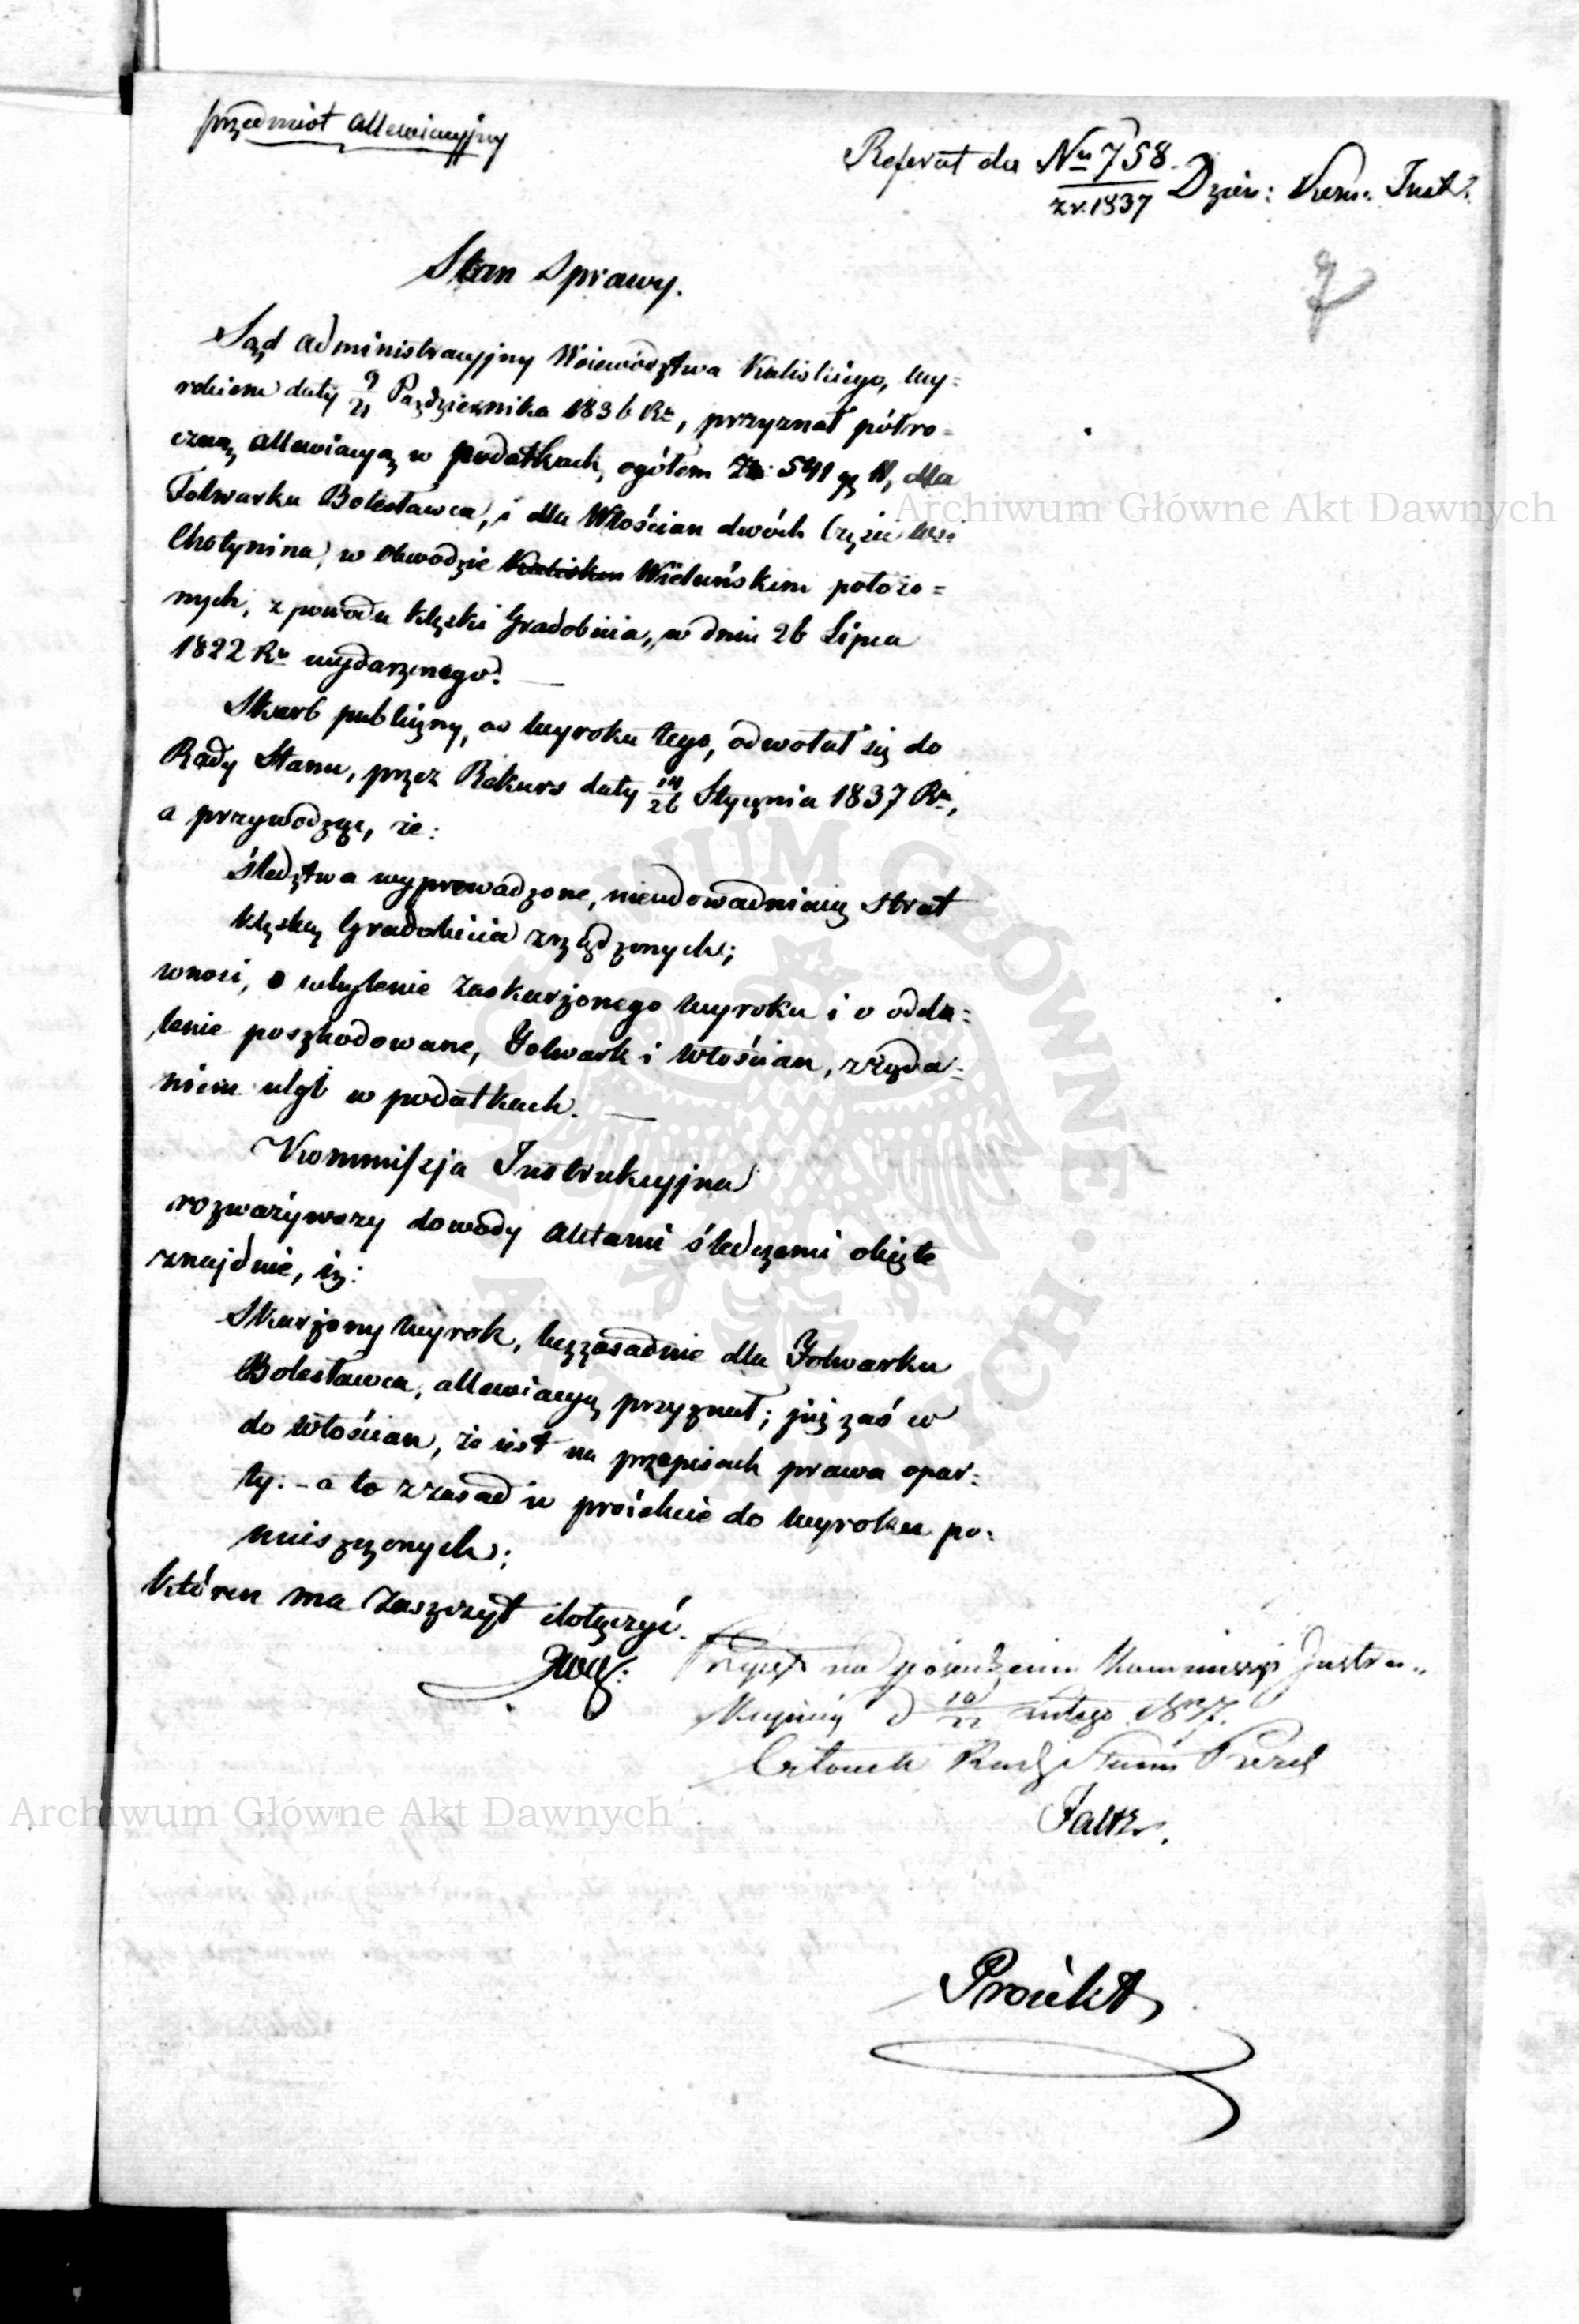 przedmiot allewiacyjny
Referat do Nru 758 Dzien: Kom: Inst:
z r. 1837
7
Stan Sprawy.
Sąd administracyjny Woiewództwa Kaliskiego, wy=
rokiem daty 9/21 Października 1836 Ru, przyznał półro=
czną allewiacyą w podatkach, ogółem Zł: 541 gr 11, dla
Folwarku Bolesławca, i dla Włościan dwóch Części wsi
Chotynina, w obwodzie Wieluńskim położo=
nych, z powodu klęski Gradobicia, w dniu 26 Lipca
1822 Ru wydarzonego. —
Skarb publiczny, od wyroku tego, odwołał się do
Rady Stanu, przez Rekurs daty 14/26 Stycznia 1837 Ru,
a przywodząc, że:
śledztwa wyprowadzone, nieudowadniaią strat
klęską Gradobicia zrządzonych;
wnosi, o uchylenie zaskarżonego wyroku i o odda=
lenie poszkodowane, Folwark i Włościan, z żąda=
niem ulgi w podatkach. —
Kommissja Instrukcyjna
rozważywszy dowody aktami śledczemi obięte
znajduie, iż:
Skarżony wyrok, bezzasadnie dla Folwarku
Bolesławca, allewiacyą przyznał; już zaś w
do Włościan, że iest na przepisach prawa opar=
ty: – a to z zasad w proiekcie do wyroku po=
mieszczonych;
któren ma zaszczyt dołączyć.
Przyięty na posiedzeniu Kommissyi Instru=
kcyiney d 10/22 Lutego 1837.
Członek Rady Stanu Prezed
Faltz.
Proiekt
Archiwum Główne Akt Dawnych
Archiwum Główne Akt Dawnych
ARCHIWUM GŁÓWNE AKT DAWNYCH